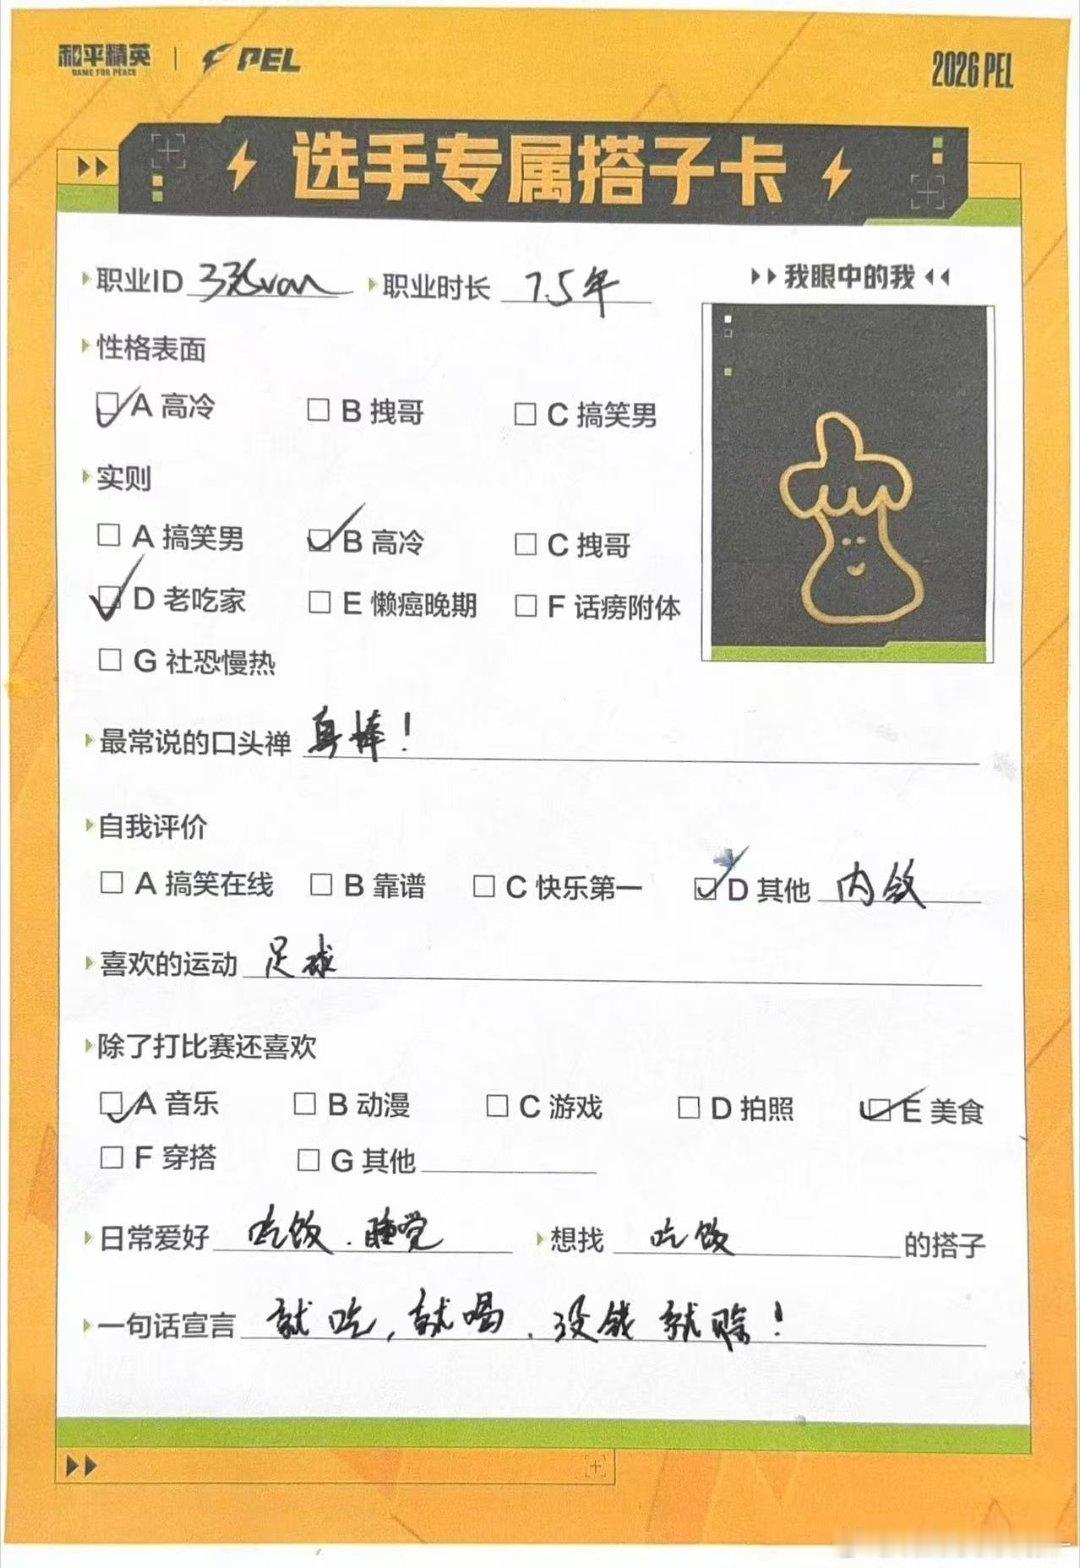 和平精英 PEL
GAME FOR PEACE
2026 PEL
选手专属搭子卡
职业ID 33Svan 职业时长 7.5年
我眼中的我
性格表面
A 高冷 B 拽哥 C 搞笑男
实则
A 搞笑男 B 高冷 C 拽哥
D 老吃家 E 懒癌晚期 F 话痨附体
G 社恐慢热
最常说的口头禅 真棒!
自我评价
A 搞笑在线 B 靠谱 C 快乐第一 D 其他 内敛
喜欢的运动 足球
除了打比赛还喜欢
A 音乐 B 动漫 C 游戏 D 拍照 E 美食
F 穿搭 G 其他
日常爱好 吃饭、睡觉 想找 吃饭 的搭子
一句话宣言 就吃,就喝、没钱就赊!